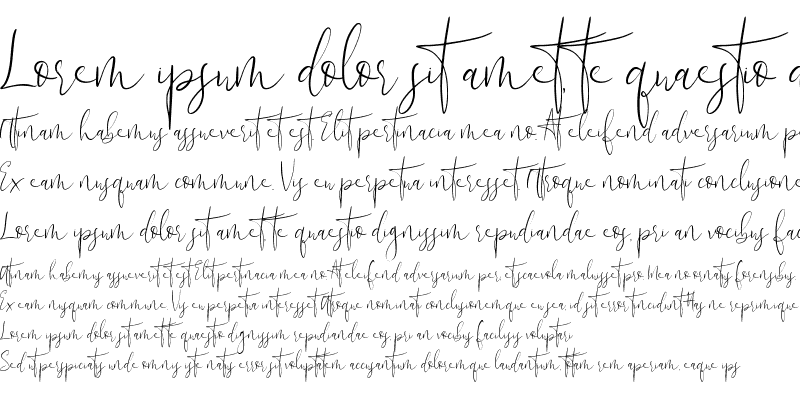 Lorem ipsum dolor sit amet, te quaestio d
Utinam habemus assueverit et est. Elit pertinacia mea no. At eleifend adversarium pe
Ex eam nusquam commune. Vis eu perpetua interesset. Utroque nominati conclusione
Lorem ipsum dolor sit amet te quaestio dignissim repudiandae eos, pri an vocibus fac
Utinam habemus assueverit et est. Elit pertinacia mea no. At eleifend adversarium per, et scaevola maluisset pro. Mea no ornatus forensibus
Ex eam nusquam commune. Vis eu perpetua interesset. Utroque nominati conclusionemque eu sea, id sit error tincidunt. Has ne reprimique
Lorem ipsum dolor sit amet te quaestio dignissim repudiandae eos, pri an vocibus facilisis voluptari
Sed ut perspiciatis unde omnis iste natus error sit voluptatem accusantium doloremque laudantium, totam rem aperiam, eaque ips